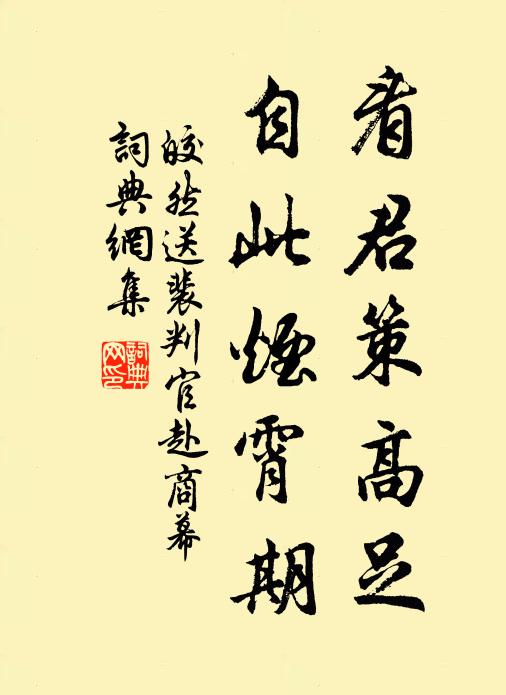 看君策高足
自此煙霄期
皎然送裴判官赴商幕
詞典網集
詞典網印